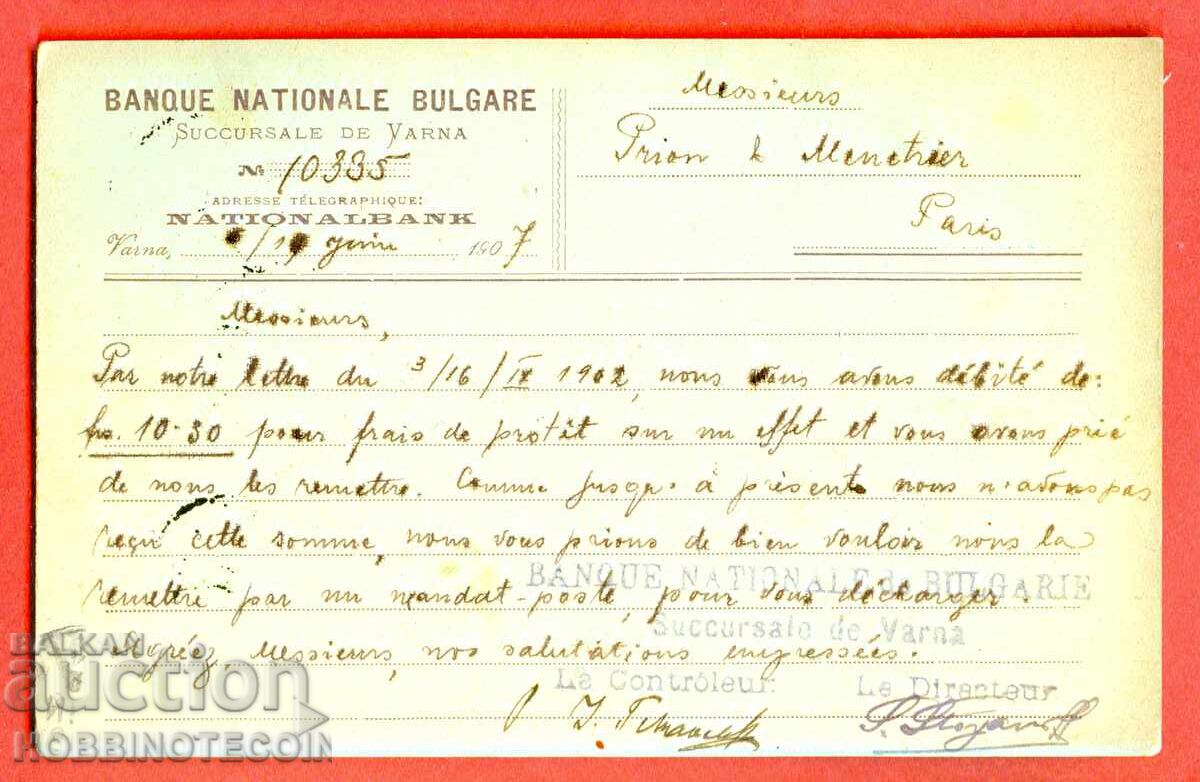 BANQUE NATIONALE BULGARE
SUCCURSALE DE VARNA
No 10335
ADRESSE TÉLÉGRAPHIQUE:
NATIONALBANK
Varna, juin 1907
Messieurs
Prion & Menetrier
Paris
Messieurs,
Par notre lettre du 3/16/IX 1902, nous vous avons débité de:
frs. 10.30 pour frais de protêt sur un effet et vous avons prié
de nous les remettre. Comme jusqu'à présent nous n'avons pas
reçu cette somme, nous vous prions de bien vouloir nous la
remettre par un mandat-poste, pour vous décharger.
Agréez, Messieurs, nos salutations empressées.
BANQUE NATIONALE de BULGARIE
Succursale de Varna
Le Contrôleur: Le Directeur
BALKAN
auction
HOBBINOTECOIN